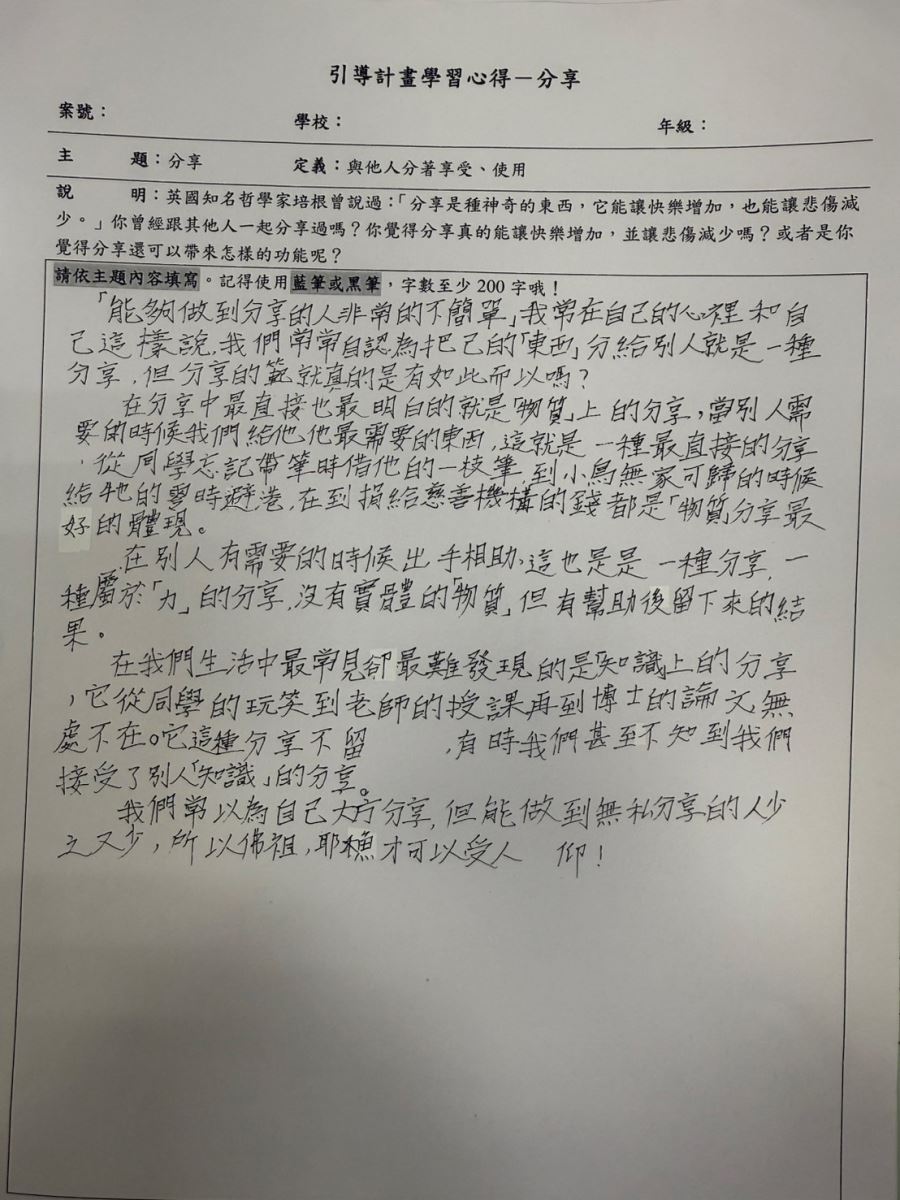 引導計畫學習心得－分享
案號： 學校： 年級：
主 題：分享 定義：與他人分著享受、使用
說 明：英國知名哲學家培根曾說過：「分享是種神奇的東西，它能讓快樂增加，也能讓悲傷減
少。」你曾經跟其他人一起分享過嗎？你覺得分享真的能讓快樂增加，並讓悲傷減少嗎？或者是你
覺得分享還可以帶來怎樣的功能呢？
請依主題內容填寫。記得使用藍筆或黑筆，字數至少 200 字哦！
「能夠做到分享的人非常的不簡單」我常在自己的心裡和自
己這樣說,我們常常自認為把己的「東西」分給別人就是一種
分享,但分享的範就真的是有如此而以嗎？
在分享中最直接也最明白的就是「物質」上的分享，當別人需
要的時候我們給他他最需要的東西,這就是一種最直接的分享
,從同學忘記帶筆時借他的一枝筆,到小鳥無家可歸的時候
給牠的零時避港,在到捐給慈善機構的錢都是「物質」分享最
好的體現。
在別人有需要的時候出手相助,這也是是一種分享,一
種屬於「力」的分享,沒有實體的「物質」但有幫助後留下來的結
果。
在我們生活中最常見卻最難發現的是知識上的分享
，它從同學的玩笑到老師的授課再到博士的論文,無
處不在。它這種分享不留 ,有時我們甚至不知到我們
接受了別人「知識」的分享。
我們常以為自己大方分享,但能做到無私分享的人少
之又少，所以佛祖,耶穌才可以受人 仰！